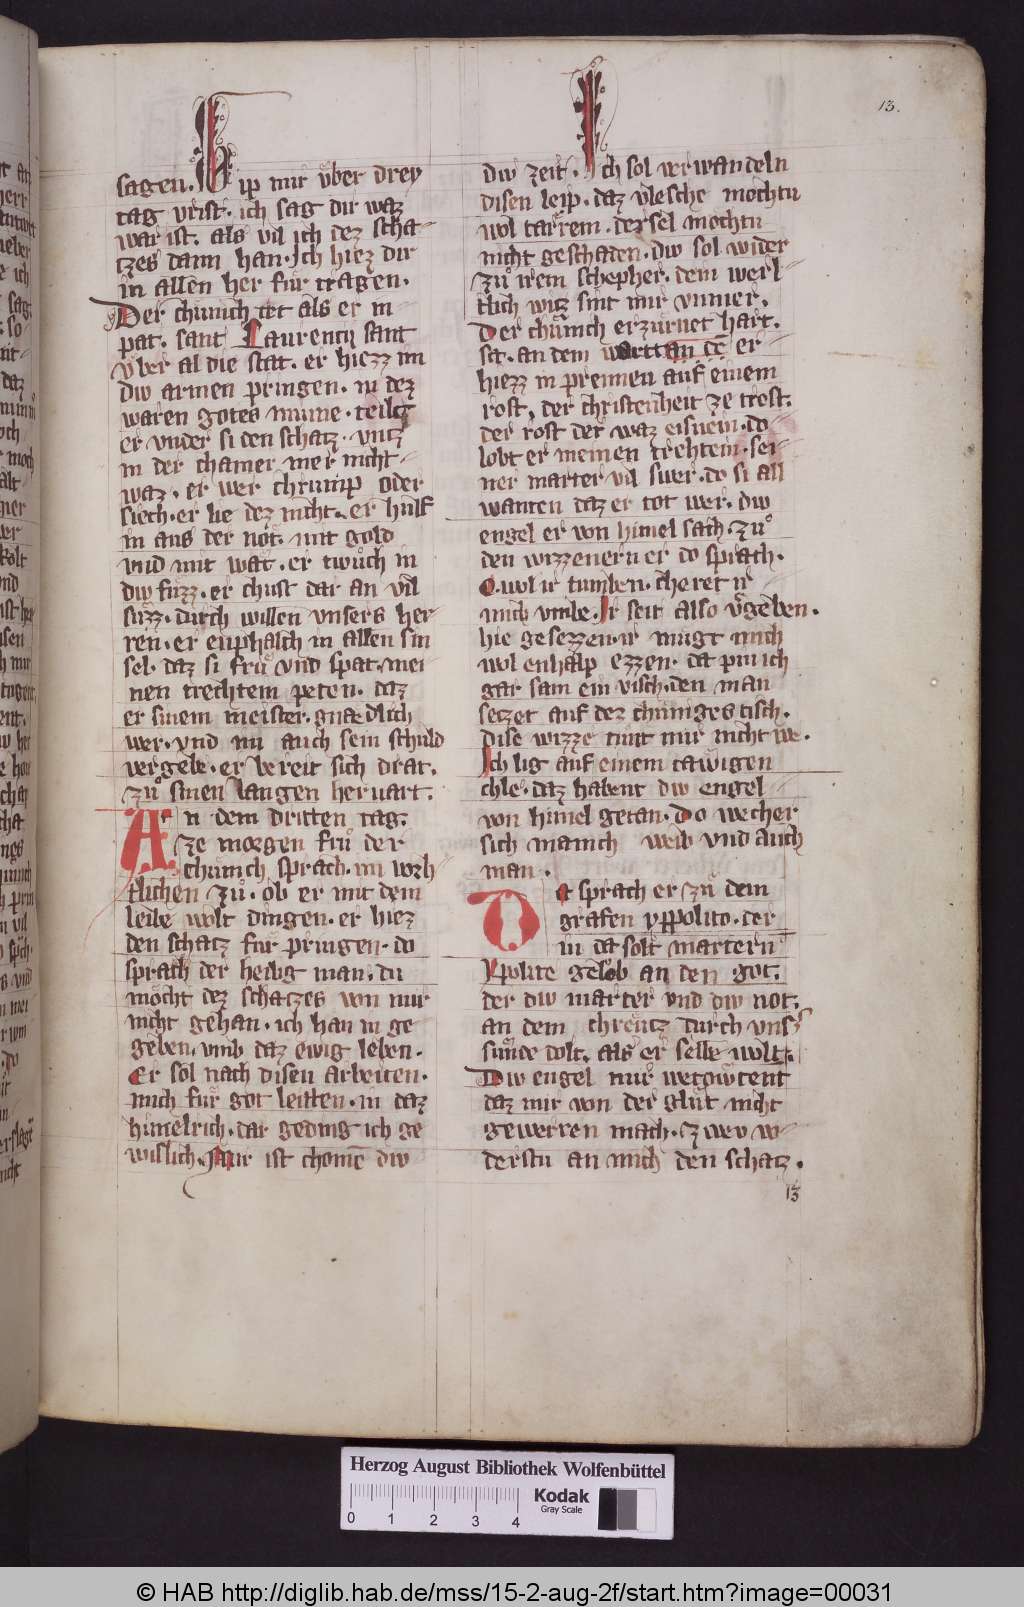 13.
sagen. Gip mir vͤber drey
tag vrist. ich sag dir waz
war ist. als vil ich dez scha-
tzes dann han. Ich hiez dir
in allen her fuͤr tragen.
Der chunich tet als er in
pat. sant Laurencij sant
vͤber al die stat. er hiezz im
diw armen pringen. in dez
waren gotes minne. teilt
er vnder si den schatz. vntz
in der chamer mer nicht
waz. er wer chrump oder
siech. er lie dez nicht. er hulf
in aus der noͤt. mit gold
vnd mit wat. er twuͦch in
diw fuͤzz. er chust dar an vil
suͤzz. durch willen vnsers her-
ren. er enphalch in allen sin
sel. daz si fruͤ vnd spat. mei-
nen trechtein peten. daz
er sinem meister. gnædlich
wer. vnd im auch sein schuld
vergebe. er bereit sich drat.
zuͦ sinen langen heruart.
An dem dritten tag.
ze morgen fruͦ der
chuͤnich sprach. im vorh-
tlichen zuͦ. ob er mit dem
leibe wolt dingen. er hiez
den schatz fuͤr pringen. do
sprach der heilig man. du
moͤcht dez schatzes von mir
nicht gehan. ich han in ge
geben. vmb daz ewig leben.
Er sol nach disen arbeiten.
mich fuͤr got leitten. in daz
himelrich. dar geding ich ge
wislich. Mir ist chomen̄ diw
diw zeit. Ich sol verwandeln
disen leip. daz vleische mochtu
wol tarrem. der sel mochtu
nicht geschaden. diw sol wider
zuͦ irem schepher. dem werl-
tlich witz sint mir vnmer.
Der chuͤnich erzuͤrnet hart.
sa. an dem warttan de er
hiezz in prennen auf einem
rost. der christenheit ze trost.
der rost der waz eisnein. do
lobt er meinen trehtein. sei-
ner marter vil swer. do si all
wanten daz er tot wer. diw
engel er von himel sach. zuͦ
den wizzenern er do sprach.
O. wol ir tumben. cheret ir
mich vmbe. Ir seit also vͤgeben.
hie gesezzen. ir mugt mich
wol enhalp ezzen. da pin ich
gar sam ein visch. den man
setzet auf dez chuniges tisch.
dise wizze tuͦt mir nicht we.
Ich lig auf einem tawigen
chle. daz habent diw engel
von himel getan. Do wecher
sich manich weib vnd auch
man.
Da sprach er zuͦ dem
grafen yppolito. der
in da solt martern
Ypolite gelob an den got.
der diw marter vnd diw not.
an dem chreͤutz durch vns
suͤnde dolt. als er selbe wolt.
Diw engel mir wetowtent
daz mir von der gluͦt nicht
gewerren mach. zwev w-
derstu an mich den schatz.
13
Herzog August Bibliothek Wolfenbüttel
Kodak
Gray Scale
0 1 2 3 4
© HAB http://diglib.hab.de/mss/15-2-aug-2f/start.htm?image=00031